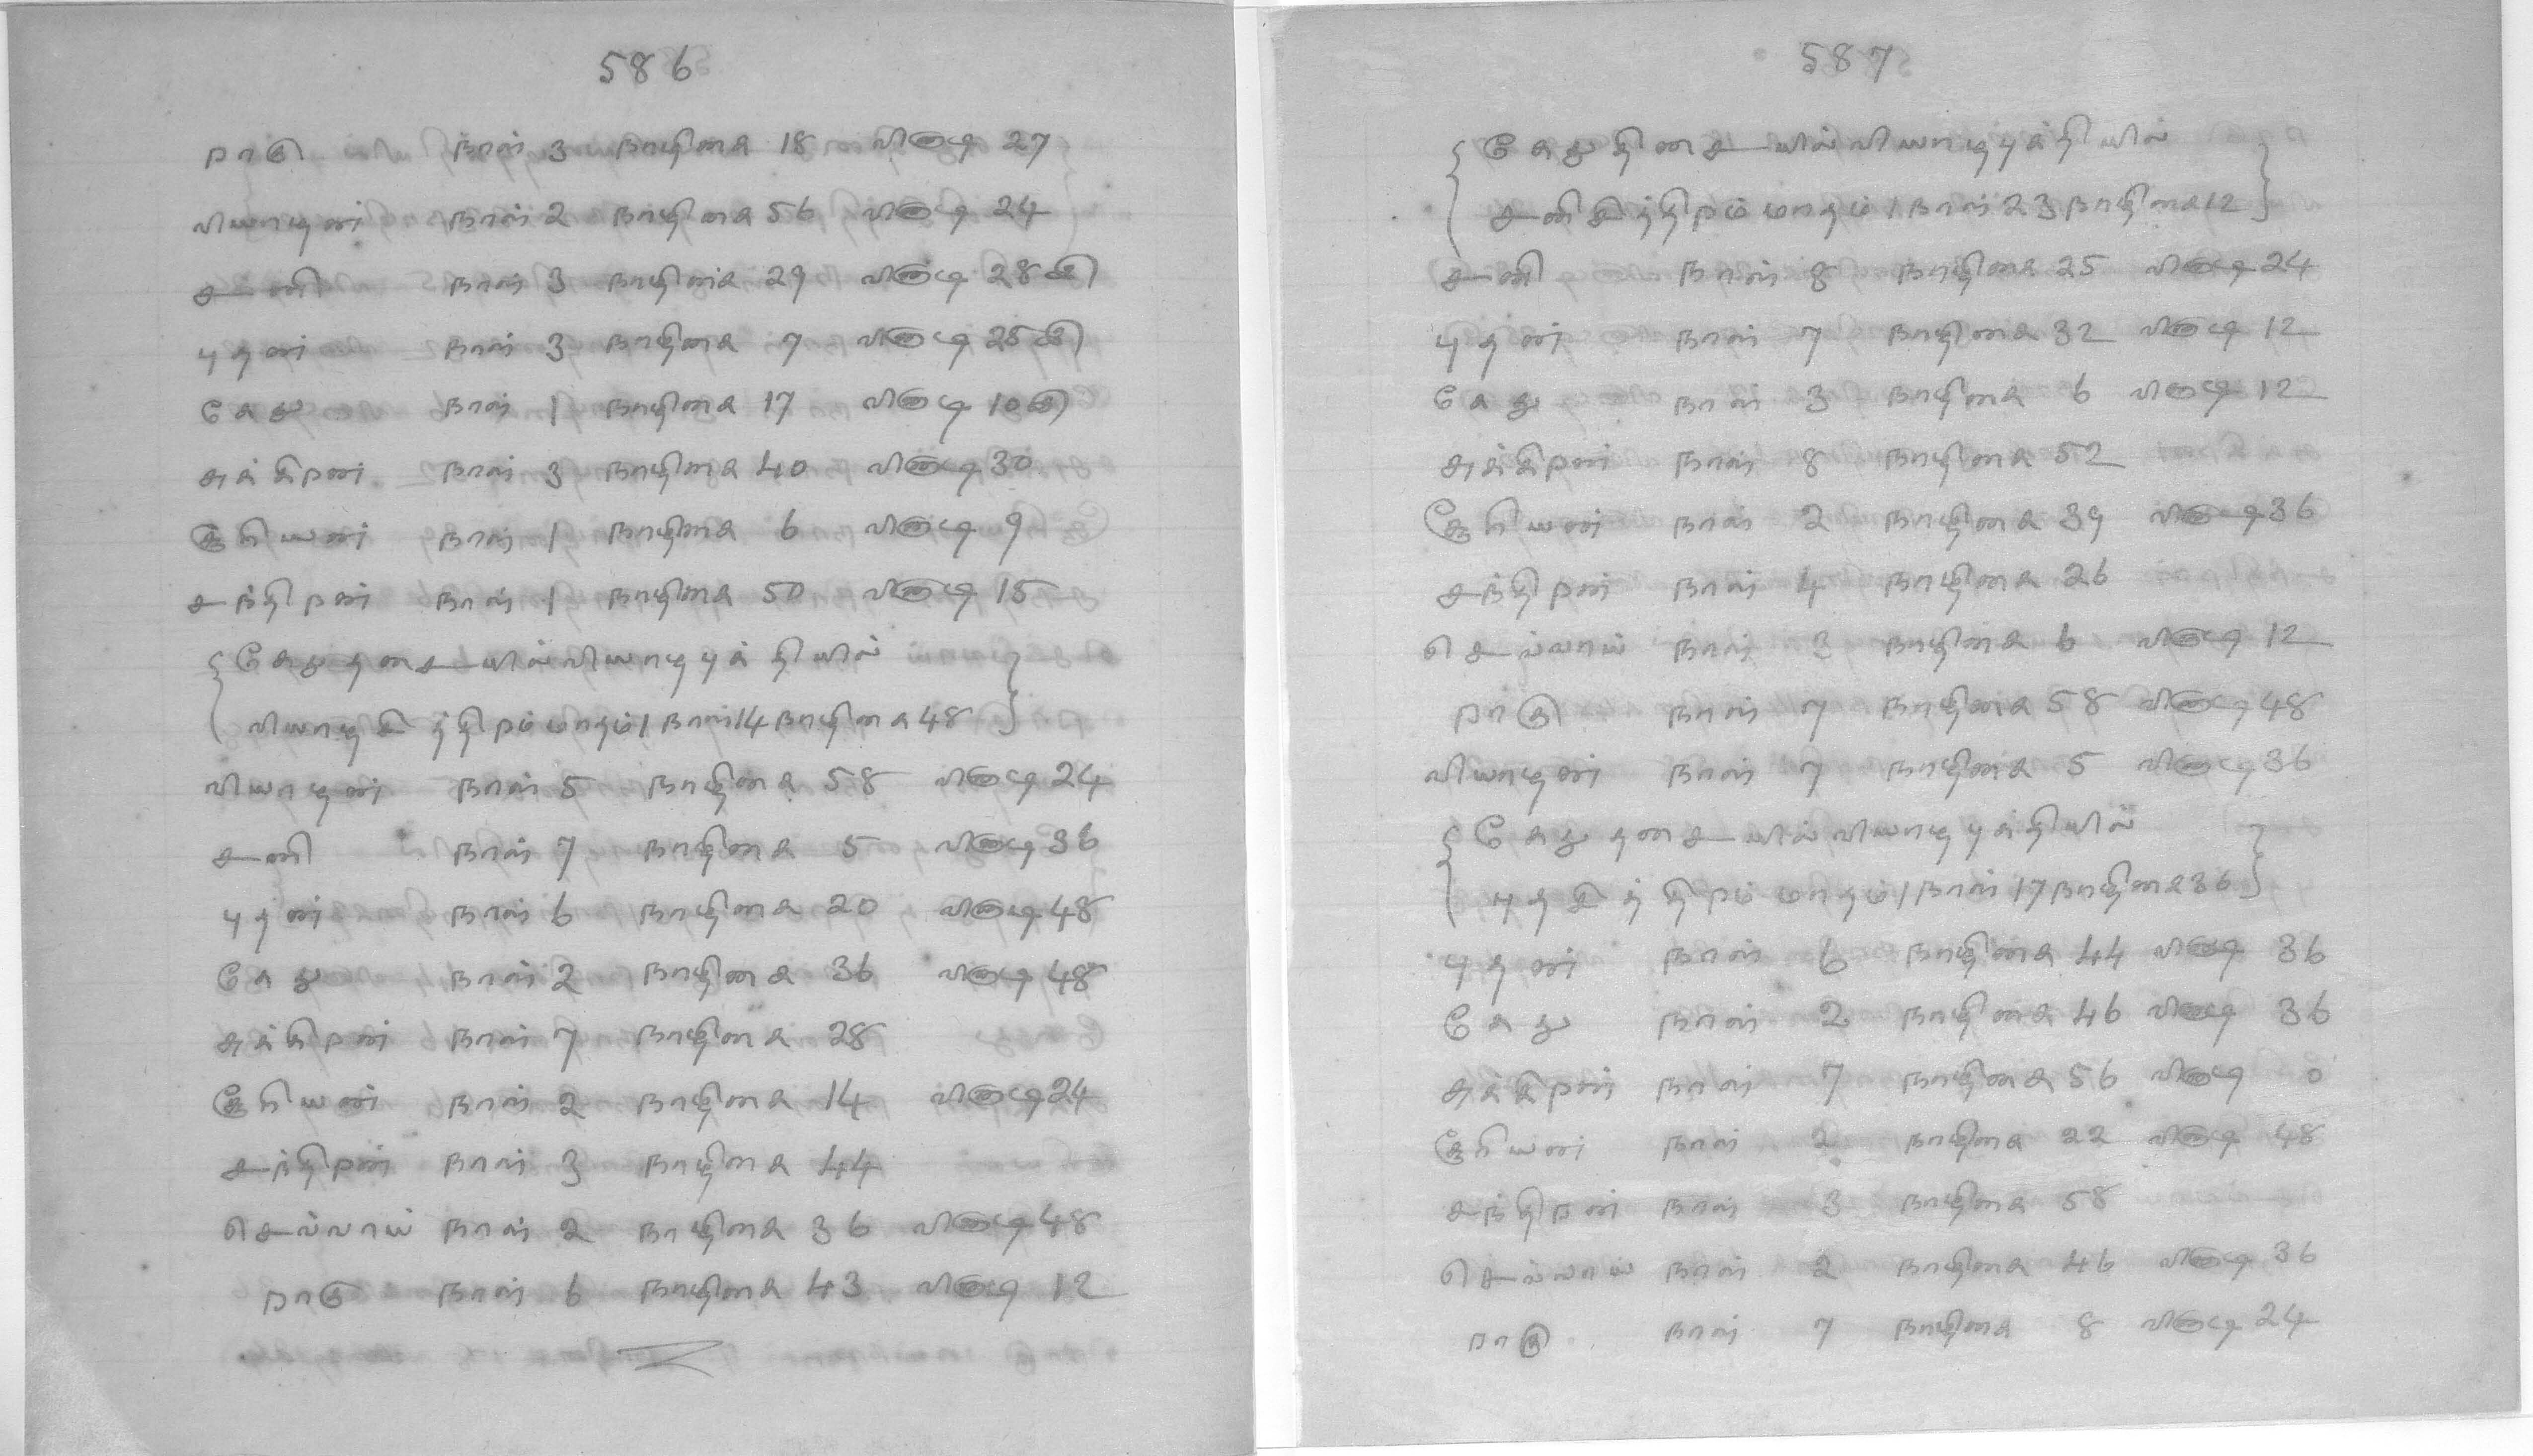 586
ராகு நாள் 3 நாழிகை 18 வினாடி 27
வியாழன் நாள் 2 நாழிகை 56 வினாடி 24
சனி நாள் 3 நாழிகை 29 வினாடி 28
புதன் நாள் 3 நாழிகை 7 வினாடி 25
கேது நாள் 1 நாழிகை 17 வினாடி 10
சுக்கிரன் நாள் 3 நாழிகை 40 வினாடி 30
சூரியன் நாள் 1 நாழிகை 6 வினாடி 9
சந்திரன் நாள் 1 நாழிகை 50 வினாடி 15
{ கேது தசையில் வியாழ புக்தியில் }
{ வியாழ சித்திரம் மாதம் 1 நாள் 14 நாழிகை 48 }
வியாழன் நாள் 5 நாழிகை 58 வினாடி 24
சனி நாள் 7 நாழிகை 5 வினாடி 36
புதன் நாள் 6 நாழிகை 20 வினாடி 48
கேது நாள் 2 நாழிகை 36 வினாடி 48
சுக்கிரன் நாள் 7 நாழிகை 28
சூரியன் நாள் 2 நாழிகை 14 வினாடி 24
சந்திரன் நாள் 3 நாழிகை 44
செவ்வாய் நாள் 2 நாழிகை 36 வினாடி 48
ராகு நாள் 6 நாழிகை 43 வினாடி 12
587
{ கேது திசையில் வியாழ புக்தியில் }
{ சனி சித்திரம் மாதம் 1 நாள் 23 நாழிகை 12 }
சனி நாள் 8 நாழிகை 25 வினாடி 24
புதன் நாள் 7 நாழிகை 32 வினாடி 12
கேது நாள் 3 நாழிகை 6 வினாடி 12
சுக்கிரன் நாள் 8 நாழிகை 52
சூரியன் நாள் 2 நாழிகை 39 வினாடி 36
சந்திரன் நாள் 4 நாழிகை 26
செவ்வாய் நாள் 3 நாழிகை 6 வினாடி 12
ராகு நாள் 7 நாழிகை 58 வினாடி 48
வியாழன் நாள் 7 நாழிகை 5 வினாடி 36
{ கேது தசையில் வியாழ புக்தியில் }
{ புத சித்திரம் மாதம் 1 நாள் 17 நாழிகை 36 }
புதன் நாள் 6 நாழிகை 44 வினாடி 36
கேது நாள் 2 நாழிகை 46 வினாடி 36
சுக்கிரன் நாள் 7 நாழிகை 56 வினாடி 0
சூரியன் நாள் 2 நாழிகை 22 வினாடி 48
சந்திரன் நாள் 3 நாழிகை 58
செவ்வாய் நாள் 2 நாழிகை 46 வினாடி 36
ராகு நாள் 7 நாழிகை 8 வினாடி 24